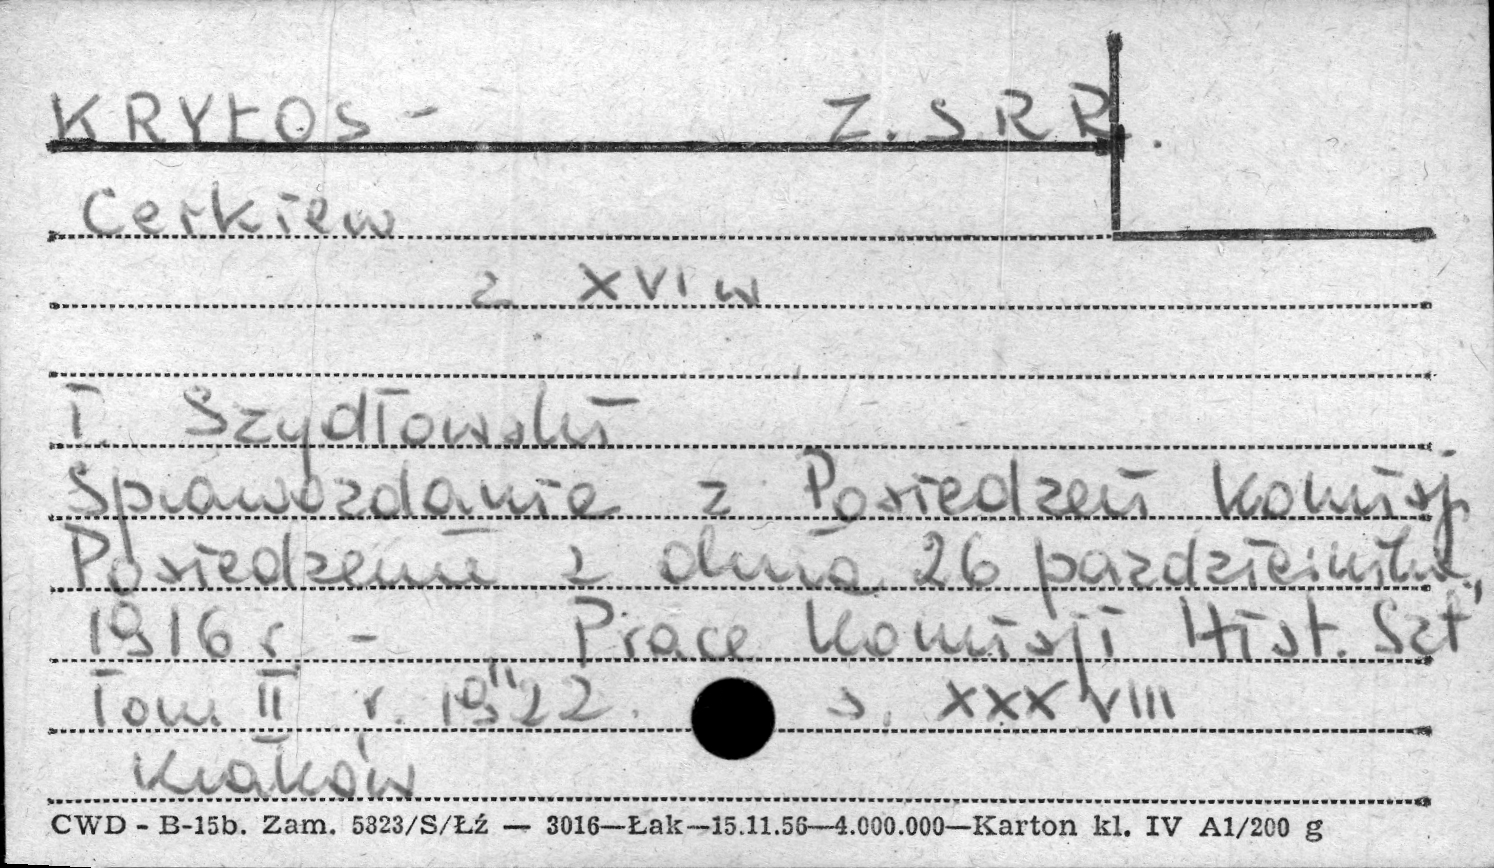 KRYŁOS - Z.SRR.
Cerkiew
z XVI w
T. Szydłowski
Sprawozdanie z Posiedzeń Komisj.
Posiedzenie z dnia 26 pazdziernika
1916 r - "Prace Komisji Hist. Szt"
Tom II r. 1922. s. XXXVIII
Kraków
CWD - B-15b. Zam. 5323/S/Łź — 3016—Łak—15.11.56—4.000.000—Karton kl. IV A1/200 g